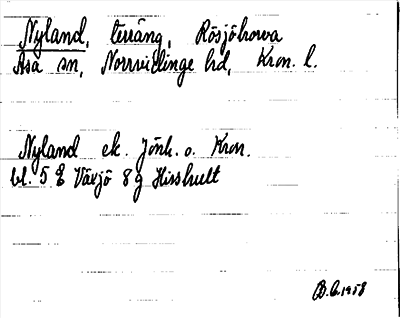 Nyland, terräng, Rösjöhorva
Asa sn, Norrvidinge hd, Kron. l.
Nyland ek. Jönk. o. Kron.
bl. 5 E Växjö 8 g Hisshult
B.G. 1958